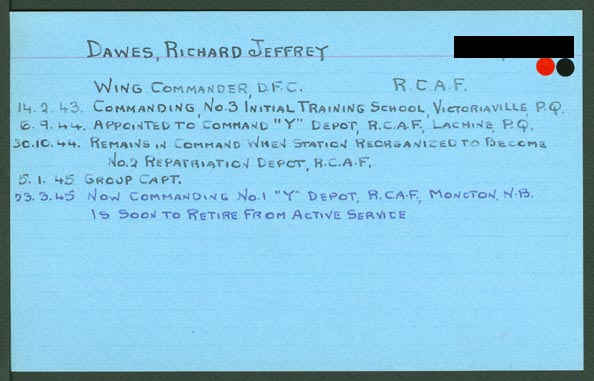 DAWES, RICHARD JEFFREY
WING COMMANDER, D.F.C. R.C.A.F.
14.2.43. COMMANDING, No.3 INITIAL TRAINING SCHOOL, VICTORIAVILLE, P.Q.
6.9.44. APPOINTED TO COMMAND "Y" DEPOT, R.C.A.F., LACHINE, P.Q.
30.10.44. REMAINS IN COMMAND WHEN STATION REORGANIZED TO BECOME
No.2 REPATRIATION DEPOT, R.C.A.F.
5.1.45 GROUP CAPT.
23.3.45 NOW COMMANDING No.1 "Y" DEPOT, R.C.A.F., MONCTON, N.B.
IS SOON TO RETIRE FROM ACTIVE SERVICE